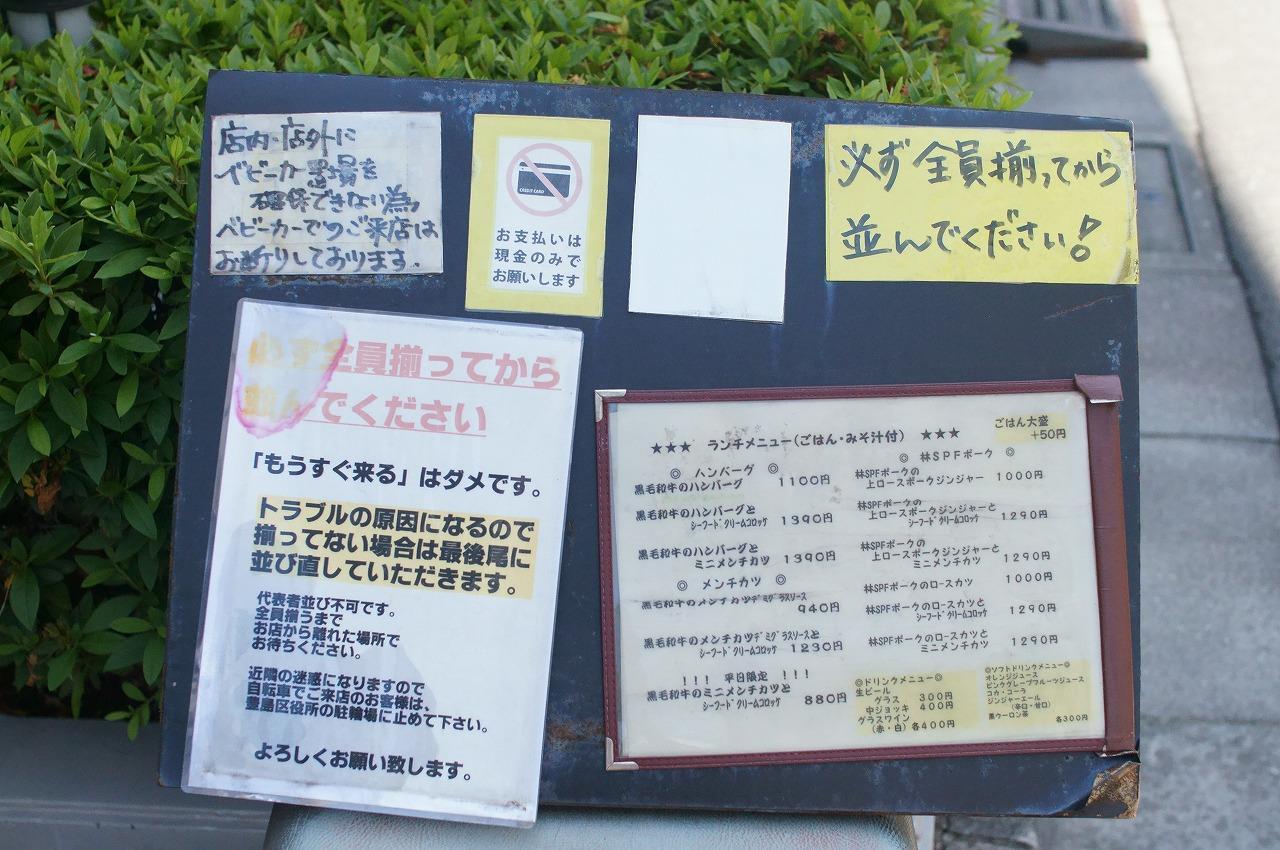 店内・店外に
ベビーカー置場を
確保できない為、
ベビーカーでのご来店は
お断りしております.
CREDIT CARD
お支払いは
現金のみで
お願いします
必ず全員揃ってから
並んでください!
必ず全員揃ってから
並んでください
「もうすぐ来る」はダメです。
トラブルの原因になるので
揃ってない場合は最後尾に
並び直していただきます。
代表者並び不可です。
全員揃うまで
お店から離れた場所で
お待ちください。
近隣の迷惑になりますので
自転車でご来店のお客様は、
豊島区役所の駐輪場に止めて下さい。
よろしくお願い致します。
★★★ ランチメニュー(ごはん・みそ汁付) ★★★
ごはん大盛
+50円
◎ ハンバーグ ◎
黒毛和牛のハンバーグ 1100円
黒毛和牛のハンバーグと
シーフードクリームコロッケ 1390円
黒毛和牛のハンバーグと
ミニメンチカツ 1390円
◎ メンチカツ ◎
黒毛和牛のメンチカツデミグラスソース
940円
黒毛和牛のメンチカツデミグラスソースと
シーフードクリームコロッケ 1230円
!!! 平日限定 !!!
黒毛和牛のミニメンチカツと
シーフードクリームコロッケ 880円
◎ 林SPFポーク ◎
林SPFポークの
上ロースポークジンジャー 1000円
林SPFポークの
上ロースポークジンジャーと
シーフードクリームコロッケ 1290円
林SPFポークの
上ロースポークジンジャーと
ミニメンチカツ 1290円
林SPFポークのロースカツ 1000円
林SPFポークのロースカツと
シーフードクリームコロッケ 1290円
林SPFポークのロースカツと
ミニメンチカツ 1290円
◎ドリンクメニュー◎
生ビール
グラス 300円
中ジョッキ 400円
グラスワイン
(赤・白)各400円
◎ソフトドリンクメニュー◎
オレンジジュース
ピンクグレープフルーツジュース
コカ・コーラ
ジンジャーエール
(辛口・甘口)
黒ウーロン茶
各300円